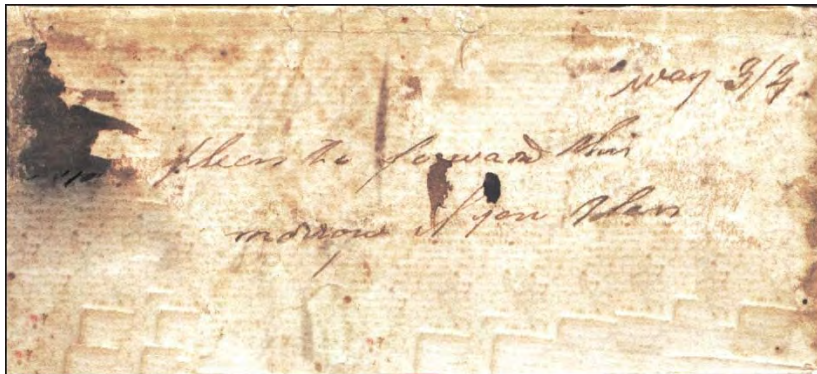 way 3/4
pleas to forward this
morrow if you pleas